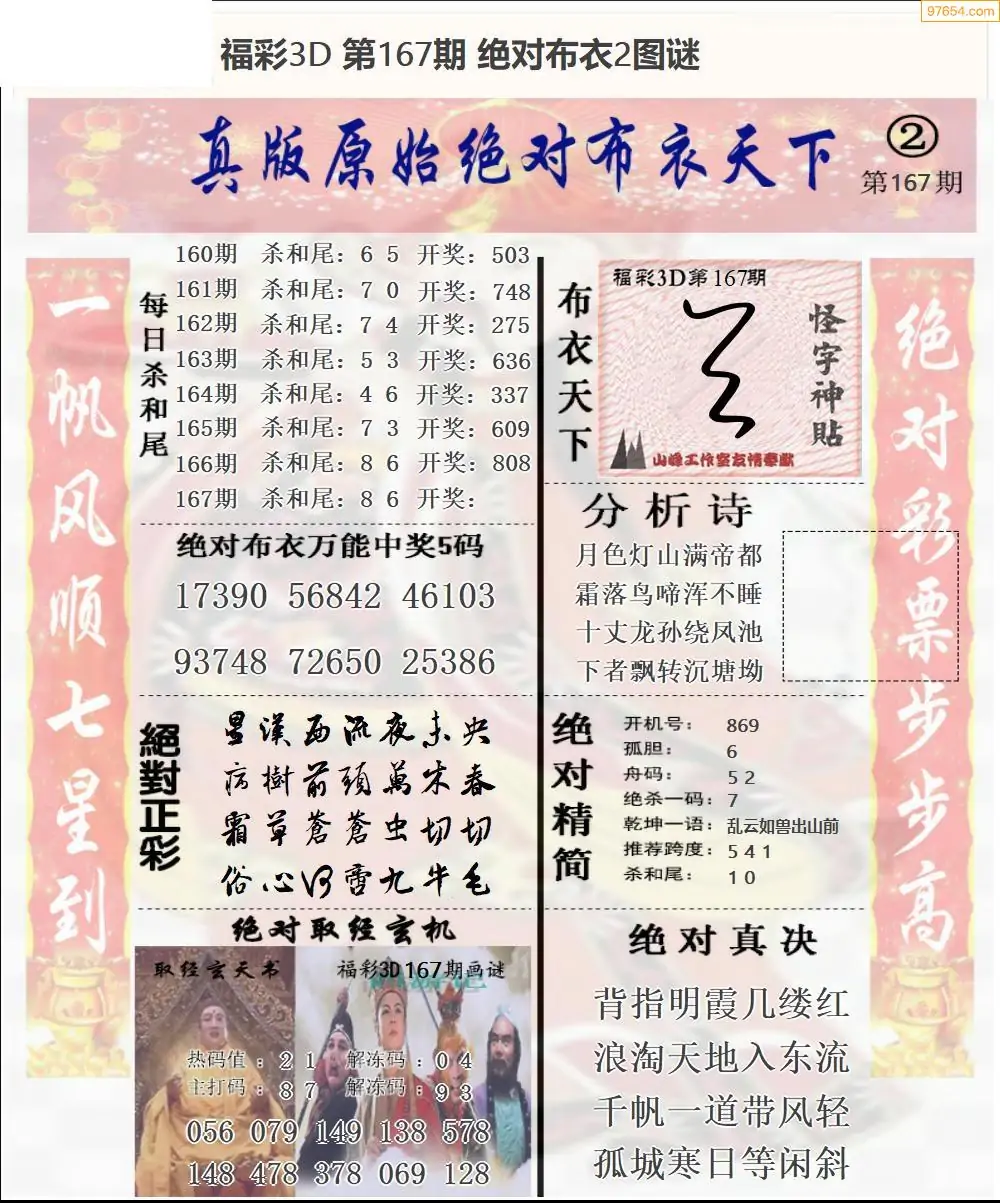 97654.com
福彩3D 第167期 绝对布衣2图谜
真版原始绝对布衣天下
②
第167期
一帆风顺七星到
每日杀和尾
160期 杀和尾：6 5 开奖：503
161期 杀和尾：7 0 开奖：748
162期 杀和尾：7 4 开奖：275
163期 杀和尾：5 3 开奖：636
164期 杀和尾：4 6 开奖：337
165期 杀和尾：7 3 开奖：609
166期 杀和尾：8 6 开奖：808
167期 杀和尾：8 6 开奖：
绝对布衣万能中奖5码
17390 56842 46103
93748 72650 25386
絕對正彩
星漢西流夜未央
病樹前頭萬木春
霜草蒼蒼虫切切
俗心何雪九牛毛
绝对取经玄机
取经玄天书
福彩3D167期画谜
热码值：2 1 解冻码：0 4
主打码：8 7 解冻码：9 3
056 079 149 138 578
148 478 378 069 128
布衣天下
福彩3D第167期
怪字神贴
山峰工作室友情奉献
分析诗
月色灯山满帝都
霜落鸟啼浑不睡
十丈龙孙绕凤池
下者飘转沉塘坳
绝对精简
开机号：869
孤胆：6
舟码：5 2
绝杀一码：7
乾坤一语：乱云如兽出山前
推荐跨度：5 4 1
杀和尾：1 0
绝对真决
背指明霞几缕红
浪淘天地入东流
千帆一道带风轻
孤城寒日等闲斜
绝对彩票步步高